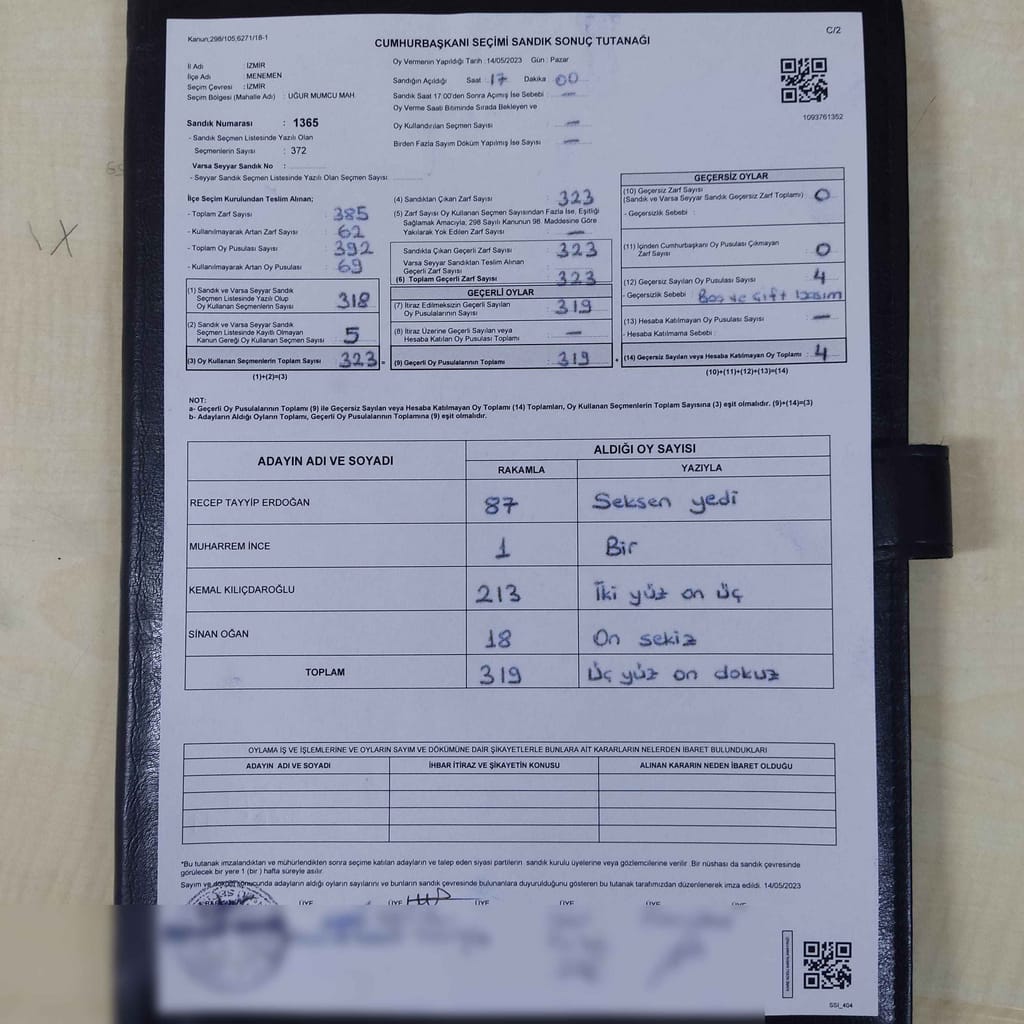 Kanun;298/105,6271/18-1
C/2
CUMHURBAŞKANI SEÇİMİ SANDIK SONUÇ TUTANAĞI
İl Adı : İZMİR
İlçe Adı : MENEMEN
Seçim Çevresi : İZMİR
Seçim Bölgesi (Mahalle Adı) : UĞUR MUMCU MAH
Sandık Numarası : 1365
- Sandık Seçmen Listesinde Yazılı Olan
Seçmenlerin Sayısı : 372
Varsa Seyyar Sandık No :
- Seyyar Sandık Seçmen Listesinde Yazılı Olan Seçmen Sayısı:
Oy Vermenin Yapıldığı Tarih : 14/05/2023 Gün : Pazar
Sandığın Açıldığı Saat 17 Dakika 00
Sandık Saat 17.00'den Sonra Açımış İse Sebebi : —
Oy Verme Saati Bitiminde Sırada Bekleyen ve
Oy Kullandırılan Seçmen Sayısı : —
Birden Fazla Sayım Döküm Yapılmış İse Sayısı : —
1093761352
İlçe Seçim Kurulundan Teslim Alınan;
- Toplam Zarf Sayısı : 385
- Kullanılmayarak Artan Zarf Sayısı : 62
- Toplam Oy Pusulası Sayısı : 392
- Kullanılmayarak Artan Oy Pusulası : 69
(1) Sandık ve Varsa Seyyar Sandık
Seçmen Listesinde Yazılı Olup
Oy Kullanan Seçmenlerin Sayısı : 318
(2) Sandık ve Varsa Seyyar Sandık
Seçmen Listesinde Kayıtlı Olmayan
Kanun Gereği Oy Kullanan Seçmen Sayısı : 5
(3) Oy Kullanan Seçmenlerin Toplam Sayısı : 323 =
(1)+(2)=(3)
(4) Sandıktan Çıkan Zarf Sayısı : 323
(5) Zarf Sayısı Oy Kullanan Seçmen Sayısından Fazla İse, Eşitliği
Sağlamak Amacıyla; 298 Sayılı Kanunun 98. Maddesine Göre
Yakılarak Yok Edilen Zarf Sayısı : —
Sandıkta Çıkan Geçerli Zarf Sayısı : 323
Varsa Seyyar Sandıktan Teslim Alınan
Geçerli Zarf Sayısı :
(6) Toplam Geçerli Zarf Sayısı : 323
GEÇERLİ OYLAR
(7) İtiraz Edilmeksizin Geçerli Sayılan
Oy Pusulalarının Sayısı : 319
(8) İtiraz Üzerine Geçerli Sayılan veya
Hesaba Katılan Oy Pusulası Toplamı : —
(9) Geçerli Oy Pusulalarının Toplamı : 319 +
GEÇERSİZ OYLAR
(10) Geçersiz Zarf Sayısı
(Sandık ve Varsa Seyyar Sandık Geçersiz Zarf Toplamı) : 0
- Geçersizlik Sebebi :
(11) İçinden Cumhurbaşkanı Oy Pusulası Çıkmayan
Zarf Sayısı : 0
(12) Geçersiz Sayılan Oy Pusulası Sayısı : 4
- Geçersizlik Sebebi : Boş ve Çift basım
(13) Hesaba Katılmayan Oy Pusulası Sayısı : —
- Hesaba Katılmama Sebebi :
(14) Geçersiz Sayılan veya Hesaba Katılmayan Oy Toplamı : 4
(10)+(11)+(12)+(13)=(14)
NOT:
a- Geçerli Oy Pusulalarının Toplamı (9) ile Geçersiz Sayılan veya Hesaba Katılmayan Oy Toplamı (14) Toplamları, Oy Kullanan Seçmenlerin Toplam Sayısına (3) eşit olmalıdır. (9)+(14)=(3)
b- Adayların Aldığı Oyların Toplamı, Geçerli Oy Pusulalarının Toplamına (9) eşit olmalıdır.
ADAYIN ADI VE SOYADI ALDIĞI OY SAYISI
RAKAMLA YAZIYLA
RECEP TAYYİP ERDOĞAN 87 Seksen yedi
MUHARREM İNCE 1 Bir
KEMAL KILIÇDAROĞLU 213 İki yüz on üç
SİNAN OĞAN 18 On sekiz
TOPLAM 319 Üç yüz on dokuz
OYLAMA İŞ VE İŞLEMLERİNE VE OYLARIN SAYIM VE DÖKÜMÜNE DAİR ŞİKAYETLERLE BUNLARA AİT KARARLARIN NELERDEN İBARET BULUNDUKLARI
ADAYIN ADI VE SOYADI İHBAR İTİRAZ VE ŞİKAYETİN KONUSU ALINAN KARARIN NEDEN İBARET OLDUĞU
*Bu tutanak imzalandıktan ve mühürlendikten sonra seçime katılan adayların ve talep eden siyasi partilerin sandık kurulu üyelerine veya gözlemcilerine verilir. Bir nüshası da sandık çevresinde
görülecek bir yere 1 (bir ) hafta süreyle asılır.
Sayım ve döküm sonucunda adayların aldığı oyların sayılarını ve bunların sandık çevresinde bulunanlara duyurulduğunu gösteren bu tutanak tarafımızdan düzenlenerek imza edildi. 14/05/2023
ÜYE ÜYE ÜYE ÜYE ÜYE ÜYE
SSI_404